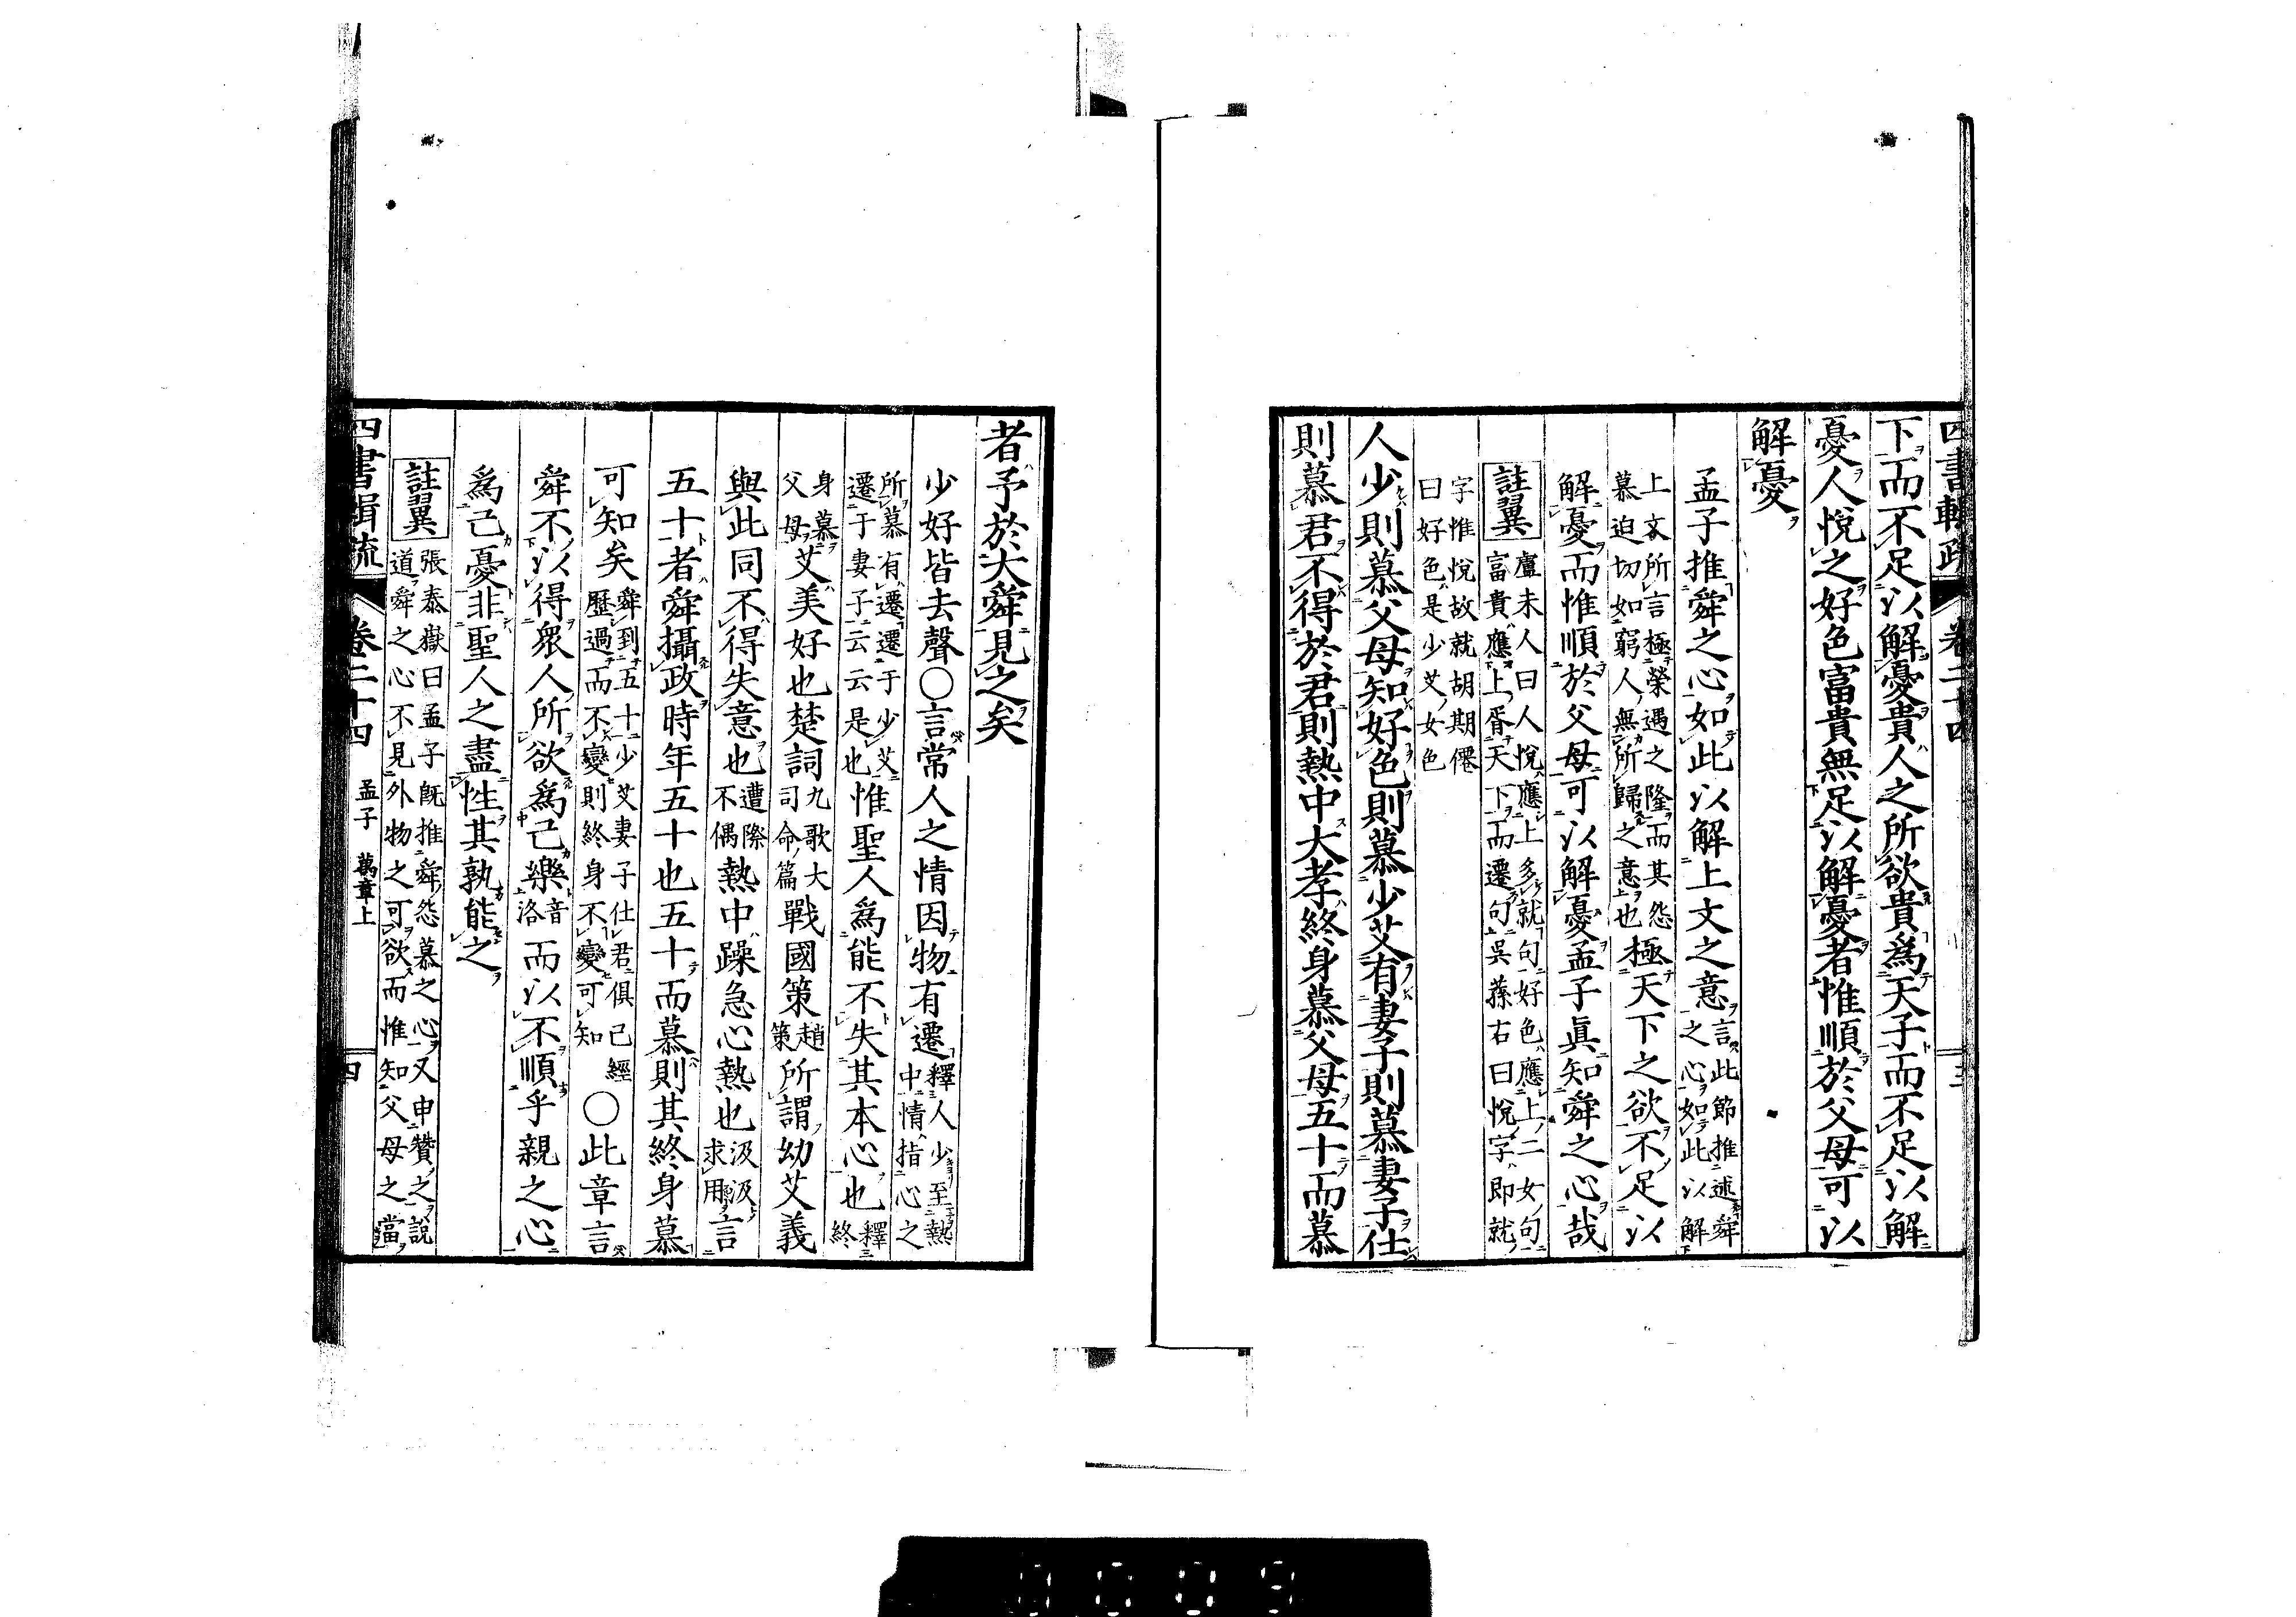 四書輯疏 卷二十四 三
下而不足以解憂貴人之所欲貴爲天子而不足以解
憂人悅之好色富貴無足以解憂者惟順於父母可以
解憂
孟子推舜之心如此以解上文之意
言此節推述舜
之心如此以解
上文所言極榮遇之隆而其怨
慕迫切如窮人無所歸之意也
極天下之欲不足以
解憂而惟順於父母可以解憂孟子眞知舜之心哉
註翼
盧未人曰人悅應上多就句好色應上二女句
富貴應上胥天下而遷句吳蓀右曰悅字卽就
字惟悅故就胡期僊
曰好色是少艾女色
人少則慕父母知好色則慕少艾有妻子則慕妻子仕
則慕君不得於君則熱中大孝終身慕父母五十而慕
者予於大舜見之矣
少好皆去聲〇言常人之情因物有遷
釋人少至熱
中情指心之
所慕有遷遷于少艾
遷于妻子云云是也
惟聖人爲能不失其本心也
釋
終
身慕
父母
艾美好也楚詞
九歌大
司命篇
戰國策
趙
策
所謂幼艾義
與此同不得失意也
遭際
不偶
熱中躁急心熱也
汲汲
求用
言
五十者舜攝政時年五十也五十而慕則其終身慕
可知矣
舜到五十少艾妻子仕君俱已經
歷過而不變則終身不變可知
〇此章言
舜不以得衆人所欲爲己樂
音
洛
而以不順乎親之心
爲己憂非聖人之盡性其孰能之
註翼
張泰嶽曰孟子旣推舜怨慕之心又申贊之說
道舜之心不見外物之可欲而惟知父母之當
四書輯疏 卷二十四 孟子 萬章上 四
0009